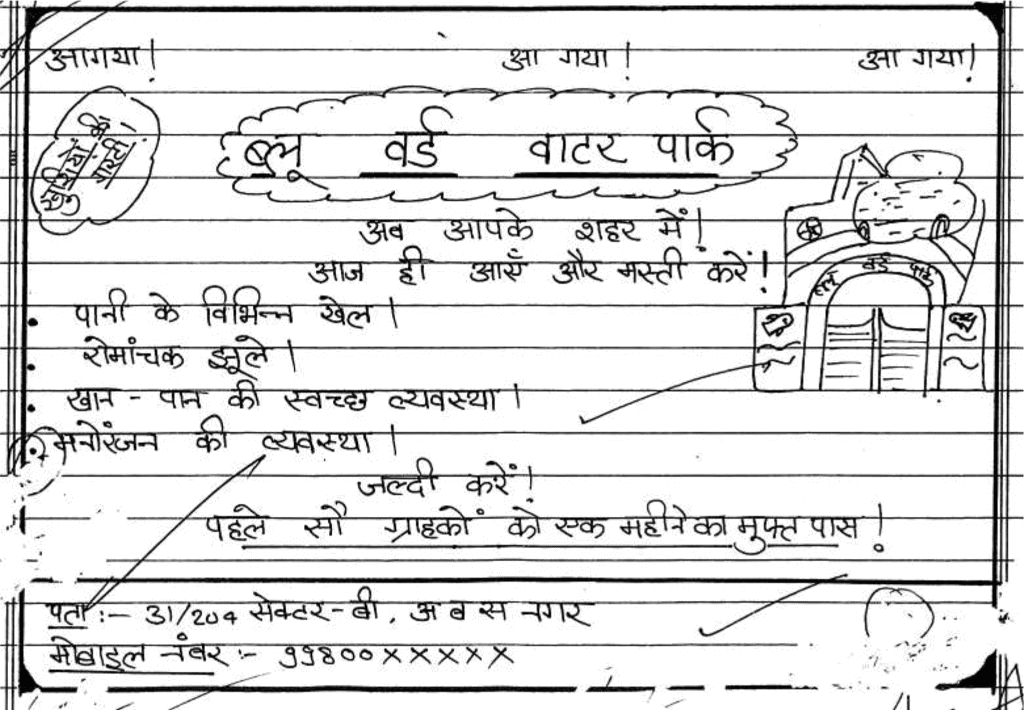 आगया! आ गया! आ गया!
खुशियों की
गारंटी!
ब्लू वर्ड वाटर पार्क
अब आपके शहर में!
आज ही आएँ और मस्ती करें!
ब्लू वर्ड पार्क
• पानी के विभिन्न खेल।
• रोमांचक झूले।
• खान - पान की स्वच्छ व्यवस्था।
• मनोरंजन की व्यवस्था।
जल्दी करें!
पहले सौ ग्राहकों को एक महीने का मुफ्त पास!
पता :- 31/204 सेक्टर-बी, अ ब स नगर
मोबाइल नंबर :- 99800xxxxx